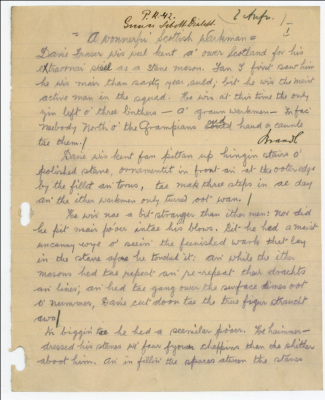 P.R. 42.
" A wonnerfu' Scottish Warkman =
Davie Fraser wis weel kent a' over Scotland for his
skeel as a stane mason. Fan I first saw him
he wis mair than saxty year auld; bit he wis the maist
active man in the squad. He wis at this time the only
yin left o' three brithers — a' graun warkmen — In fac'
naebody North o' the Grampians could haud a candle
tae them!
Davie wis kent fan pitten up hingin stairs o'
polished stane, ornamentit in front an' at the outer edge
by the fillet an torus, tae mak three steps in ae day
an' the ither warkmen only turned oot wan!
He wis nae a bit stranger than ither men: Nor did
he pit mair power intae his blows. Bit he had a maist
uncanny wye o' seein' the funished wark that lay
in the stane afore he touched it. An' while the ither
masons had tae repeat an' re-repeat their drachts
an' lines, an' had tae gang over the surface times oot
o' nummer, Davie cut doon tae the true figur straucht
awa!
In biggin' tae he had a similar power. He hammer-
dressed his stanes wi' fewer chappins than the ithers
aboot him. An' in fillin' the spaces atween the stanes